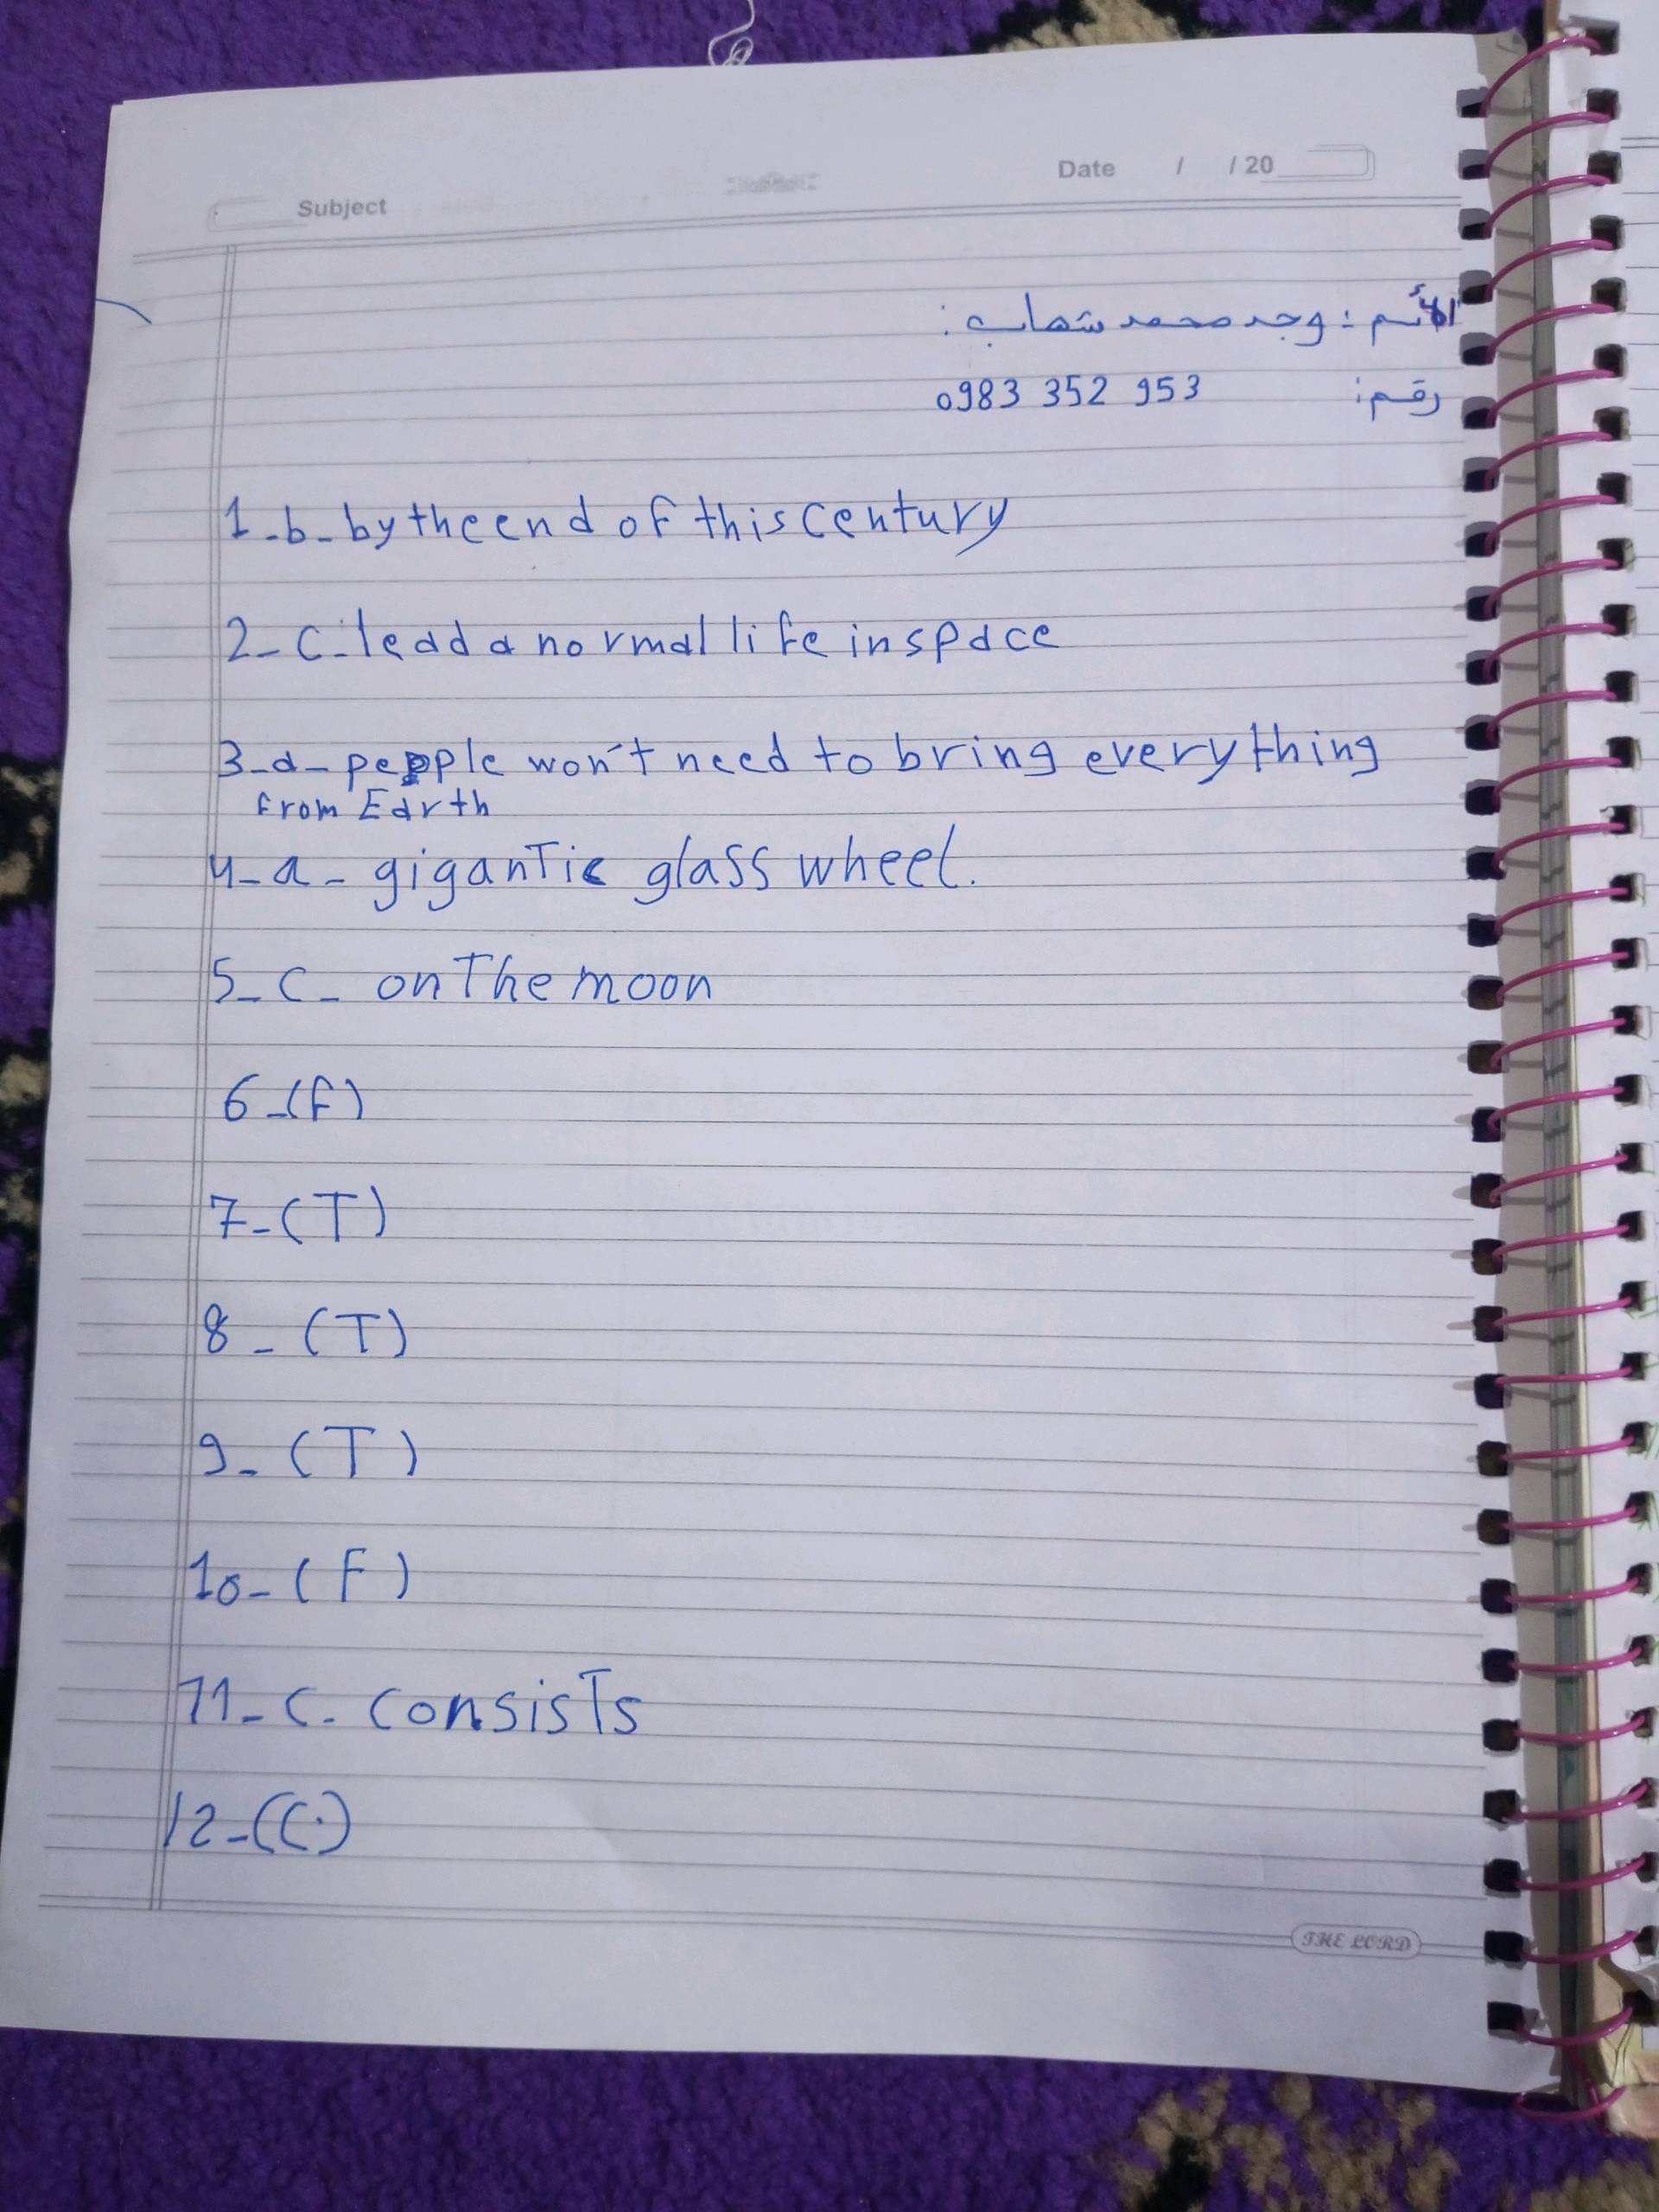 Date / / 20
Subject
الأسم : وجد محمد شهاب :
رقم: 0983 352 953
1-b- by the end of this century
2-c- lead a normal life in space
3-a- people won't need to bring everything
from Earth
4-a- gigantic glass wheel.
5-c- on The moon
6-(F)
7-(T)
8-(T)
9-(T)
10-(F)
11-c. consists
12-(C.)
THE LORD